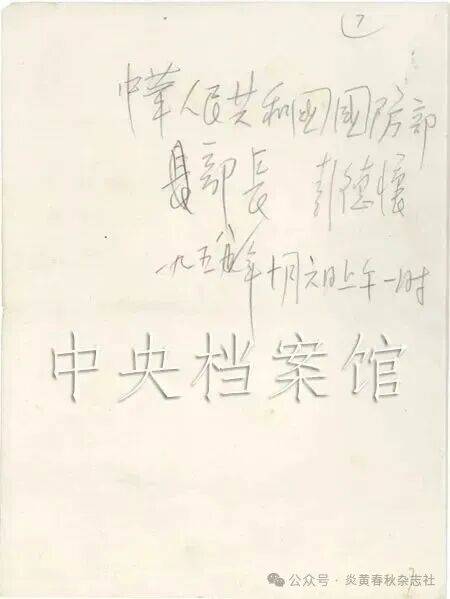 7
中華人民共和国國防部
部長 彭德懷
一九五八年十月六日上午一时
中央档案馆
7
公众号·炎黄春秋杂志社